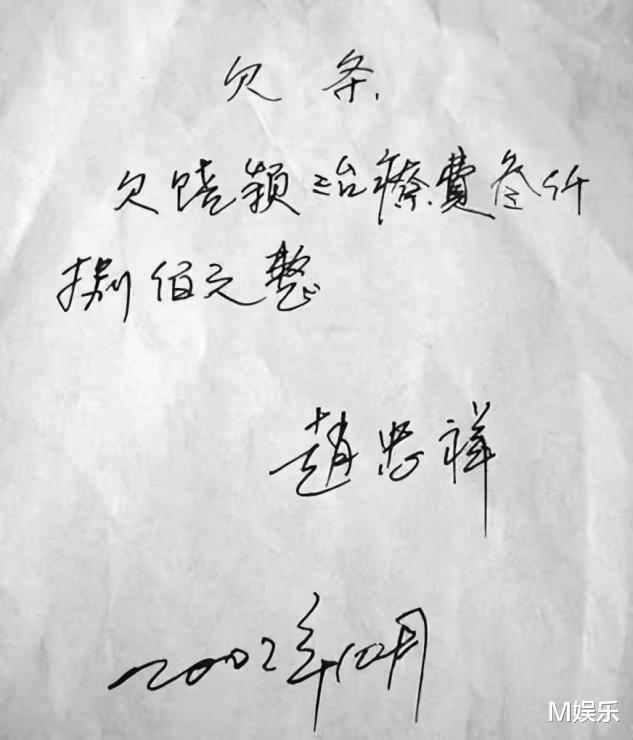 欠条.
欠饶颖治療費叁仟
捌佰元整
趙忠祥
2002年12月
M娱乐